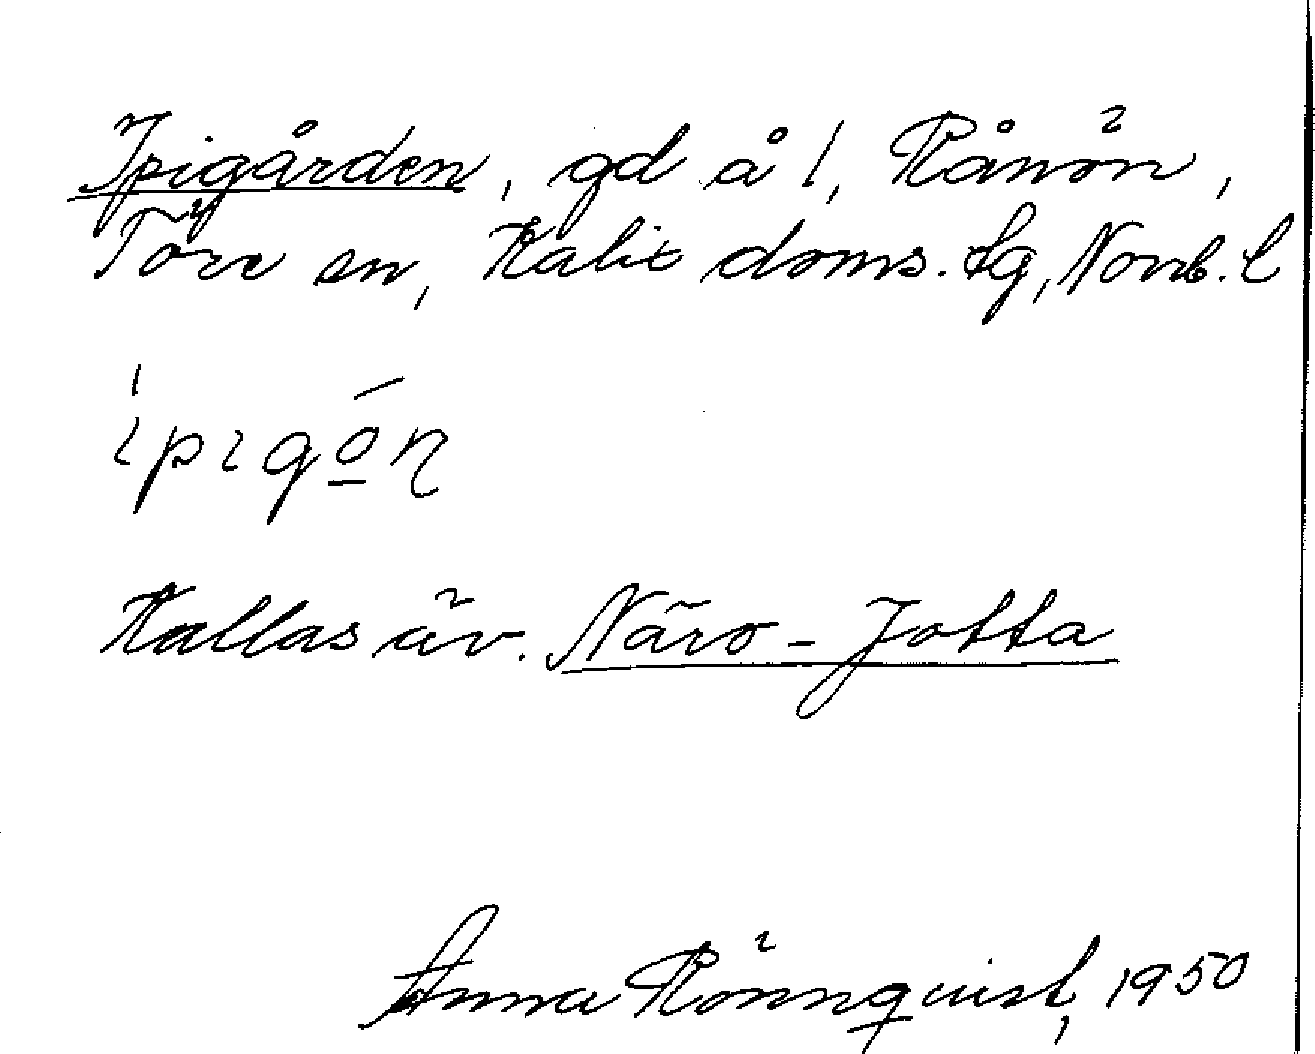 Ipigården, gd å 1, Rånön,
Töre sn, Kalix doms. fg, Norrb. l
ípıgǫ́n
Kallas äv. Näro-Jotta
Anna Rönnquist, 1950